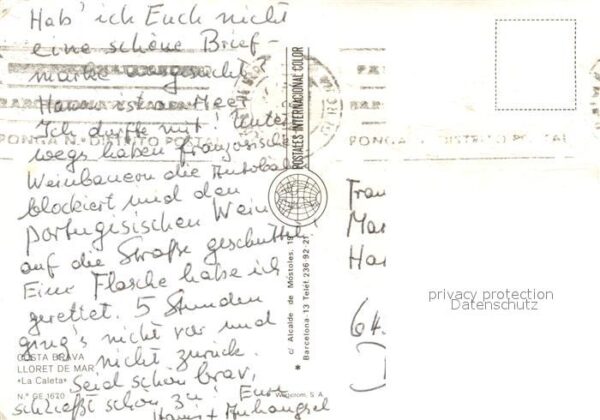 Hab' ich Euch nicht
eine schöne Brief-
marke ausgesucht?
Hanns ist am Meer
Ich durfte mit! Unter-
wegs haben französische
Weinbauern die Autobahn
blockiert und den
portugisischen Wein
auf die Straße geschüttet!
Eine Flasche habe ich
gerettet. 5 Stunden
ging's nicht vor und
nicht zurück.
Seid schön brav,
schließt schön zu! Eure
Hanns + Anhängsel
PONGA N.º DISTRITO POSTAL
COSTA BRAVA
LLORET DE MAR
«La Caleta»
N.º GE 1620
POSTALES INTERNACIONAL COLOR
c/ Alcalde de Móstoles, 19
* Barcelona-13 Telef. 236 92 21
S. A.
PONGA N.º DISTRITO POSTAL
Frau
Mar
Han
64
D
privacy protection
Datenschutz